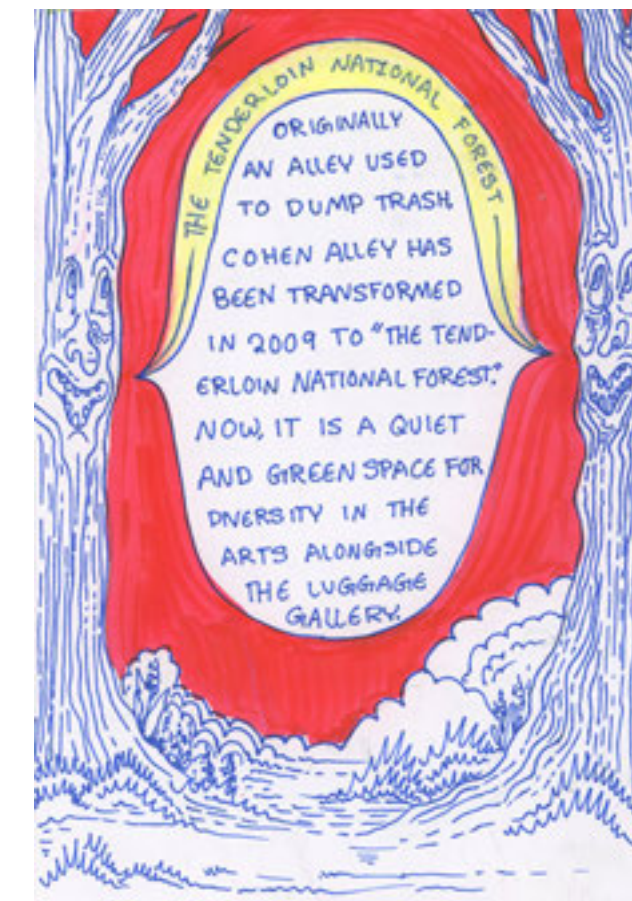 THE TENDERLOIN NATIONAL FOREST
ORIGINALLY
AN ALLEY USED
TO DUMP TRASH
COHEN ALLEY HAS
BEEN TRANSFORMED
IN 2009 TO "THE TEND-
ERLOIN NATIONAL FOREST."
NOW, IT IS A QUIET
AND GREEN SPACE FOR
DIVERSITY IN THE
ARTS ALONGSIDE
THE LUGGAGE
GALLERY.